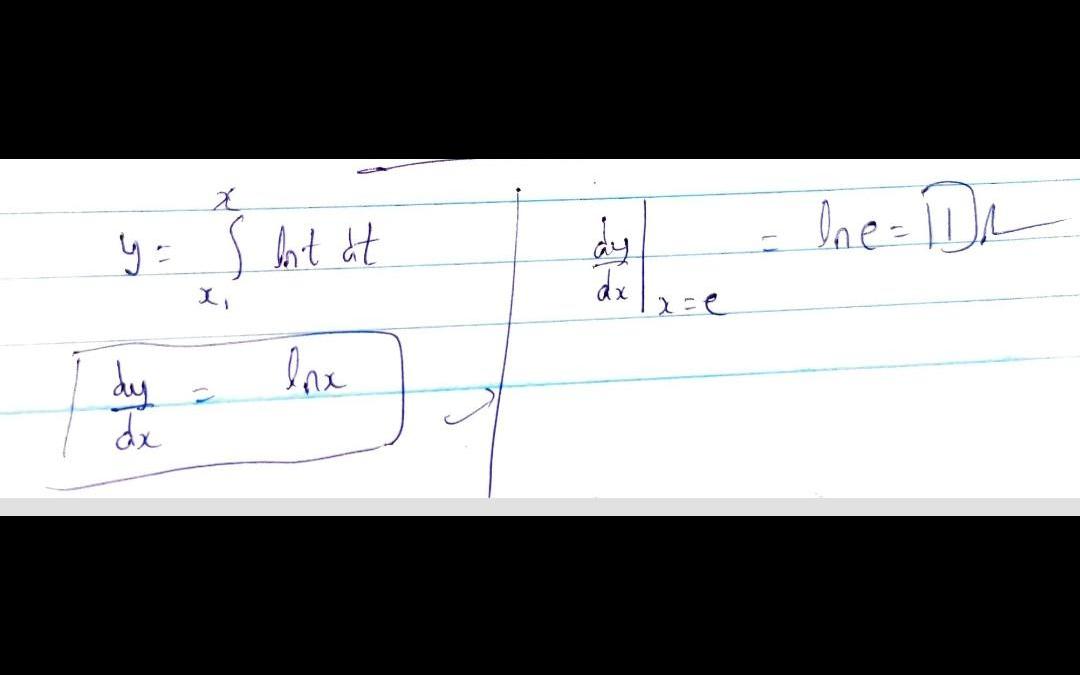 y = ∫_{x₁}^{x} ln t dt
dy/dx = ln x
dy/dx |_{x=e} = ln e = 1